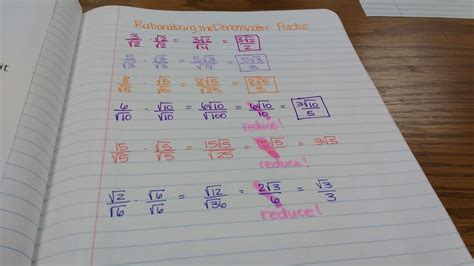 Rationalizing the Denominator Practice
3/√2 · √2/√2 = 3√2/√4 = 3√2/2
5/√3 · √3/√3 = 5√3/√9 = 5√3/3
8/√5 · √5/√5 = 8√5/√25 = 8√5/5
6/√10 · √10/√10 = 6√10/√100 = 6√10/10 = 3√10/5
reduce!
15/√5 · √5/√5 = 15√5/√25 = 15√5/5 = 3√5
reduce!
√2/√6 · √6/√6 = √12/√36 = 2√3/6 = √3/3
reduce!